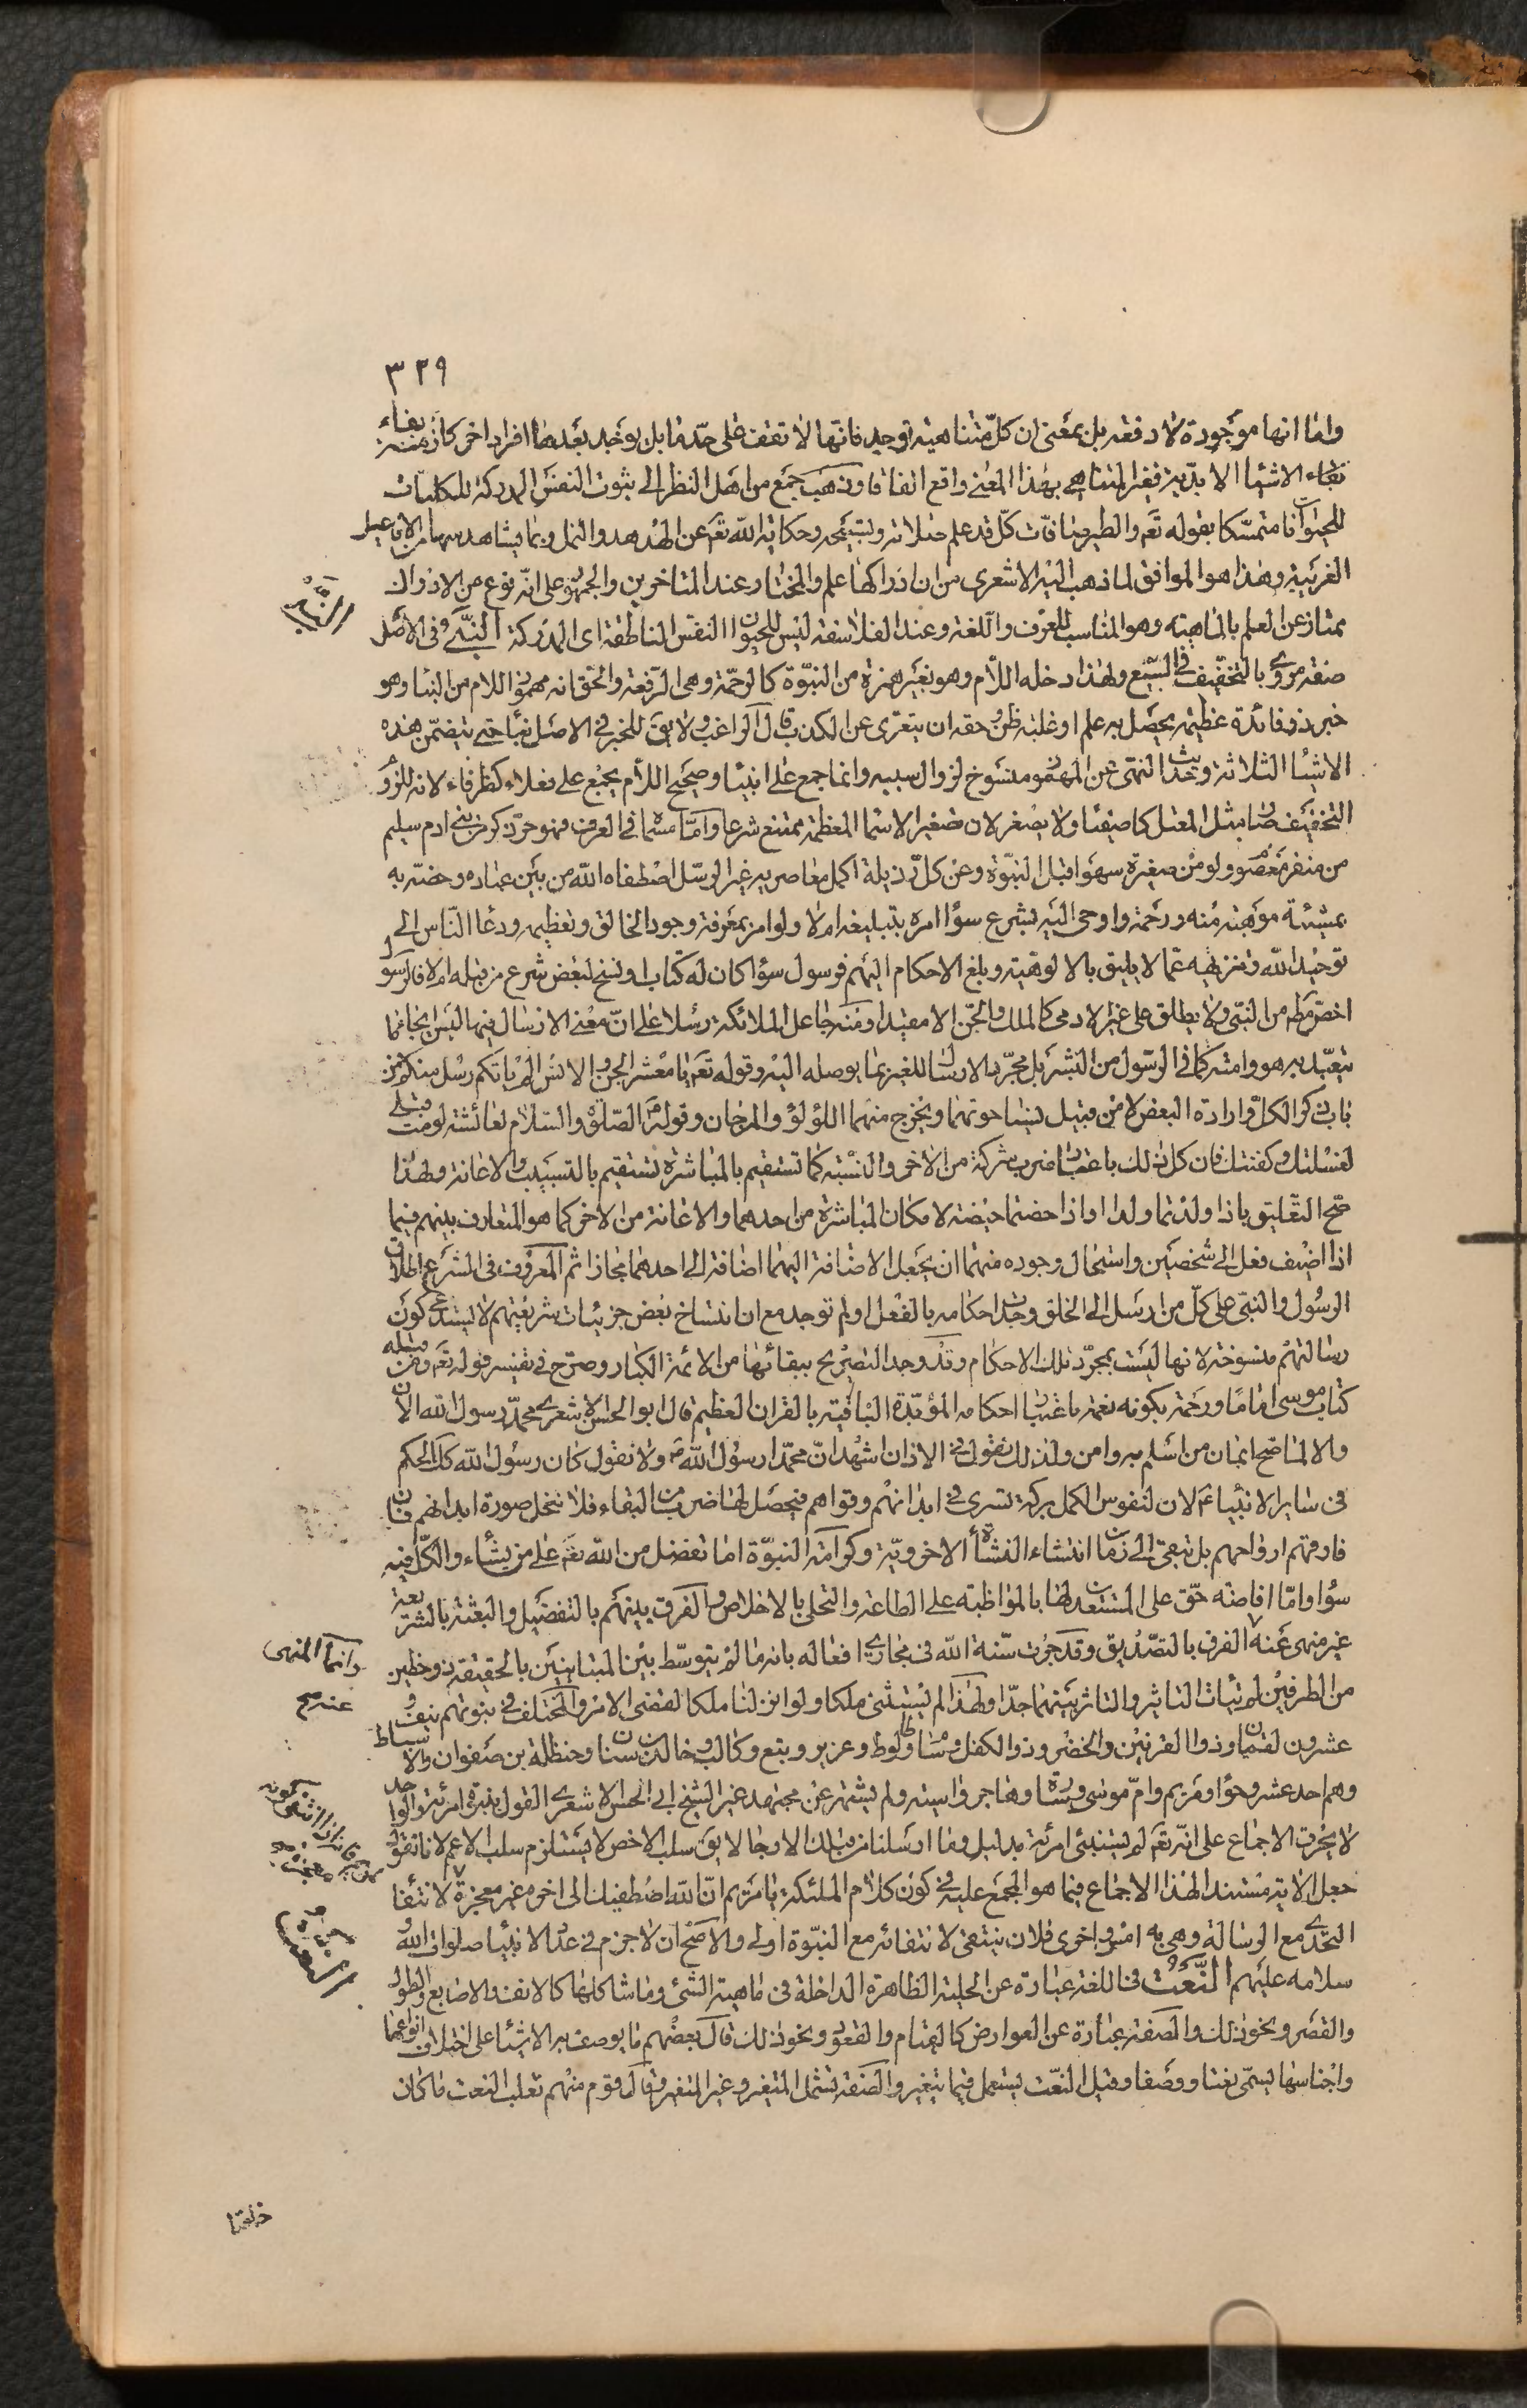 ٣٣٩
واما انها موجودة لا دفعة بل بمعنى ان كل متناهية توجد فانها لا تقف على حد ما بل يوجد بعدها افراد اخر كازمنة بقاء
بقاء الاشياء الابدية فغير المتناهي بهذا المعنى واقع اتفاقا وذهب جمع من اهل النظر الى ثبوت النفس المدركة للكليات
للحيوانات متمسكا بقوله تع والطير صافات كل قد علم صلاته وتسبيحه وحكاية الله تع عن الهدهد والنمل وبما يشاهد منها من الافاعيل
الغريبة وهذا هو الموافق لما ذهب اليه الاشعري من ان ادراكها علم والمختار عند المتاخرين والجمهور على انه نوع من الادراك
النَّبِيّ
ممتاز عن العلم بالماهية وهو المناسب للعرف واللغة وعند الفلاسفة ليس للحيوان النفس الناطقة اى المدركة النَّبِيّ فى الاصل
صفة مروي بالتخفيف في السبع ولهذا دخله اللام وهو بغير همزة من النبوة كالرحمة وهى الرفعة والحق انه مهموز اللام من النبا وهو
خبر ذو فائدة عظيمة يحصل به علم او غلبة ظن وحقه ان يتعرى عن الكذب قال الراغب ولا يق للخبر في الاصل نبا حتى يتضمن هذه
الاشياء الثلاثة وحديث النهى عن المهموز منسوخ لزوال سببه وانما جمع على انبياء وصحيح اللام يجمع على فعلاء كظرفاء لانه للزوم
التخفيف صار مثل المعتل كاصفياء ولا يصغر لان تصغير الاسماء المعظمة ممتنع شرعا واما مسماه فى العرف فهو حر ذكر من بنى ادم سليم
من منفر معصوم ولو من صغيرة سهوا قبل النبوة وعن كل رذيلة اكمل معاصريه غير الرسل اصطفاه الله من بين عباده وخصه به
بمشيئة موهبة منه ورحمة واوحى اليه بشرع سواء امره بتبليغه ام لا ولو امر بمعرفة وجود الخالق وتعظيمه ودعا الناس الى
توحيد الله وتنزيهه عما لا يليق بالالوهية وبلغ الاحكام اليهم فرسول سواء كان له كتاب او نسخ لبعض شرع من قبله ام لا فالرسول
اخص مطلقا من النبى ولا يطلق على غير الادمى كالملك والجن الا مقيدا ومنه جاعل الملائكة رسلا على ان معنى الارسال فيها ليس ايحاء ما
يتعبد به هو وامته كما فى الرسول من البشر بل مجرد الارسال للغير بما يوصله اليه وقوله تع يا معشر الجن والانس الم ياتكم رسل منكم من
باب ذكر الكل وارادة البعض لا من قبيل نسيا حوتهما ويخرج منهما اللؤلؤ والمرجان وقوله الصلوة والسلام لعائشة لو مت قبلى
لغسلتك وكفنتك فان كل ذلك باعتبار ضرب شركة من الاخر والنسبة كما تستقيم بالمباشرة تستقيم بالتسبيب والاعانة ولهذا
صح التعليق باذا ولدتما ولدا او اذا حضتما حيضة لامكان المباشرة من احدهما والاعانة من الاخر كما هو المتعارف بينهم فيما
اذا اضيف فعل الى شخصين واستحال وجوده منهما ان يجعل الاضافة اليهما اضافة الى احدهما مجازا ثم المعروف فى الشرع اطلاق
الرسول والنبى على كل من ارسل الى الخلق وجدت احكامه بالفعل او لم توجد مع ان انتساخ بعض جزئيات شريعتهم لا يستدعي كون
رسالتهم منسوخة لانها ليست بمجرد تلك الاحكام وقد وجد التصريح ببقائها من الائمة الكبار وصرح فى تفسير قوله تع ومن قبله
كتاب موسى اماما ورحمة بكونه نعمة باعتبار احكامه المؤبدة الباقية بالقران العظيم قال ابو الحسن الاشعري محمد رسول الله الان
والا لما صح ايمان من اسلم به وامن ولذلك نقول في الاذان اشهد ان محمدا رسول الله ولا نقول كان رسول الله كذا الحكم
فى ساير الانبياء عم لان لنفوس الكمل بركة تسرى في ابدانهم وقواهم فيحصل لها ضرب من البقاء فلا تنحل صورة ابدانهم فان
فارقتهم ارواحهم بل تبقى الى زمان انتشاء النشأة الاخروية وكرامة النبوة اما تفضل من الله تع على من يشاء والكل فيه
سواء واما افاضة حق على المستعدين لها بالمواظبة على الطاعة والتحلى بالاخلاص والفرق بينهم بالتفضيل والبعثة بالشريعة
غير منهى عنه الفرق بالتصديق وقد جرت سنة الله فى مجاري افعاله بانه ما لم يتوسط بين المتباينين بالحقيقة ذو حظين
وانما المنهى عنه صح
من الطرفين لم يتات التاثير والتاثر بينهما جدا ولهذا لم يستنبئ ملكا ولو انزلنا ملكا لقضى الامر والمختلف في نبوتهم نيف
عشرون لقمان وذو القرنين والخضر وذو الكفل وسام وطالوت وعزير وتبع وكالب وخالد بن سنان وحنظلة بن صفوان والاسباط
وهم احد عشر وحوا ومريم وام موسى وسارة وهاجر واسية ولم يشتهر عن مجتهد غير الشيخ ابى الحسن الاشعري القول بنبوة امرأة والواحد
لا يخرق الاجماع على انه تع لم يستنبئ امرأة بدليل وما ارسلنا من قبلك الا رجالا لا يق سلب الاخص لا يستلزم سلب الاعم لانا نقول
جعل الاية مستند لهذا الاجماع فيما هو المجمع عليه في كون كلام الملئكة يا مريم ان الله اصطفيك الى اخره غير معجزة لانتفاء
التحدي مع الرسالة وهى به امس واحرى فلان ينتفى لانتفائه مع النبوة اولى والاصح ان لا جزم فى عد الانبياء صلوات الله
النعت
سلامه عليهم النَّعْت فى اللغة عبارة عن الحلية الظاهرة الداخلة فى ماهية الشئ وما شاكلها كالانف والاصابع والطول
والقصر ونحو ذلك والصفة عبارة عن العوارض كالقيام والقعود ونحو ذلك قال بعضهم ما يوصف به الاشياء على اختلاف انواعها
واجناسها يسمى نعتا ووصفا وقيل النعت يستعمل فيما يتغير والصفة تشمل المتغير وغير المتغير وقال قوم منهم ثعلب النعت ما كان